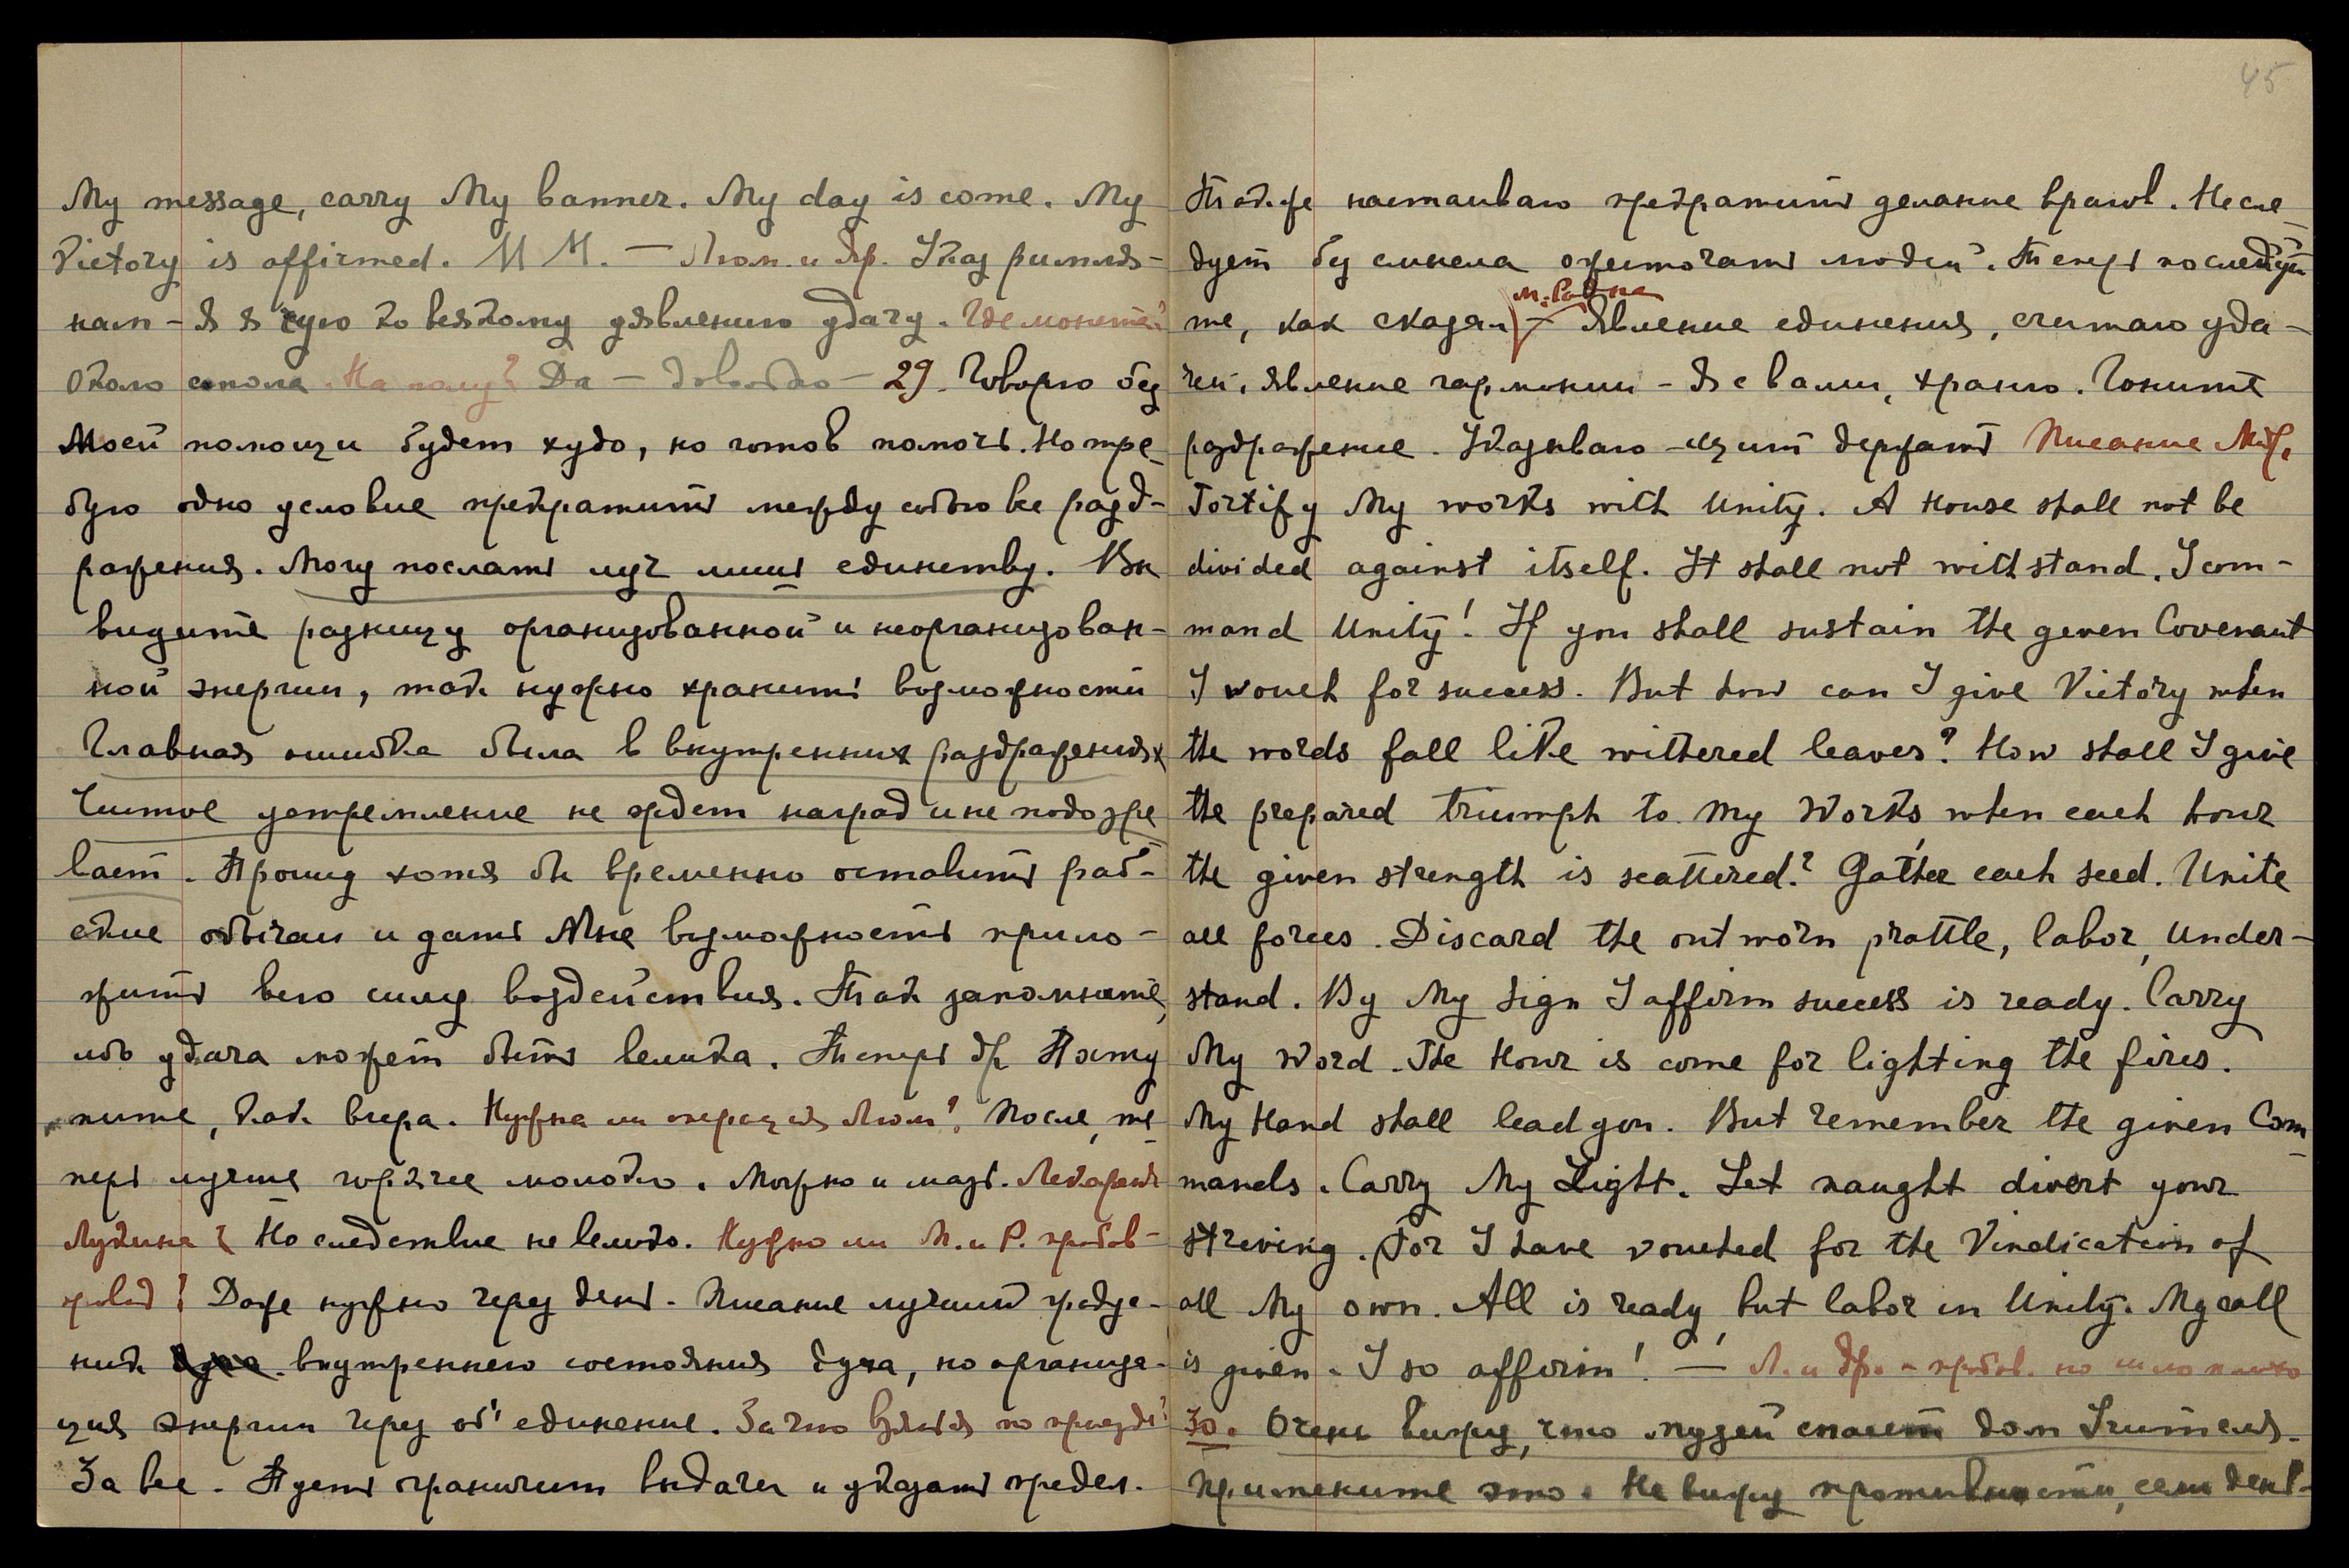 My message, carry My banner. My day is come. My
Victory is affirmed. М М. — Люм. и Яр. Указ римля-
нам — Я я чую ко всякому уявлению удачу. Где монета?
Около стола. На полу? Да — довольно — 29. Говорю без
Моей помощи будет худо, но готов помочь. Но тре-
бую одно условие прекратить между собою все разд-
ражения. Могу послать луч лишь единству. Вы
видите разницу организованной и неорганизован-
ной энергии, так нужно хранить возможности
Главная ошибка была в внутренних раздражениях
Чистое устремление не ждет наград и не подозре
вает. Прошу хотя бы временно оставить раб-
ские обычаи и дать Мне возможность прило-
жить всю силу воздействия. Так запомните,
ибо удача может быть велика. Теперь др. Пасту
пите, как вчера. Нужна ли операция Люм? После, те-
перь лучше горячее молоко. Можно и мазь. Лекарств
Лукина? Но следствие не велико. Нужно ли М. и Р. пробов-
? Даже нужно через день. Писание лучший

внутреннего состояния духа, но организа-
ция энергии через об'единение. За что взяться по приезде?
За все. Пусть ограничит выдачи и указать предел.
45
Также настаиваю прекратить делание врагов. Не сле-
дует без смысла ожесточать людей. Теперь последуй
те, как сказал — Явление единения, считаю уда-
чей, явление гармонии — Я с вами, храню. Гоните
раздражение. Указываю — щит держать Писание
Fortify My works with Unity. A House shall not be
divided against itself. It shall not withstand. I com-
mand Unity! If you shall sustain the geven Covenant
I vouch for success. But how can I give Victory when
the words fall like withered leaves? How shall I give
the prepared triumph to My Works, when each hour
the given strength is scattered? Gather each seed. Unite
all forces. Discard the outworn prattle, labor, under-
stand. By My Sign I affirm success is ready. Carry
My Word. The Hour is come for lighting the fires.
My Hand shall lead you. But remember the given Com-
mands. Carry My Light. Let naught divert your
striving. For I have vouched for the Vindication of
all My own. All is ready, but labor in Unity. My call
is given. I so affirm! — Л. и Яр. — пробов. но шло плохо
30. Очень вижу, что музей спасет дом Учителя.
Примените это. Не вижу противности, если